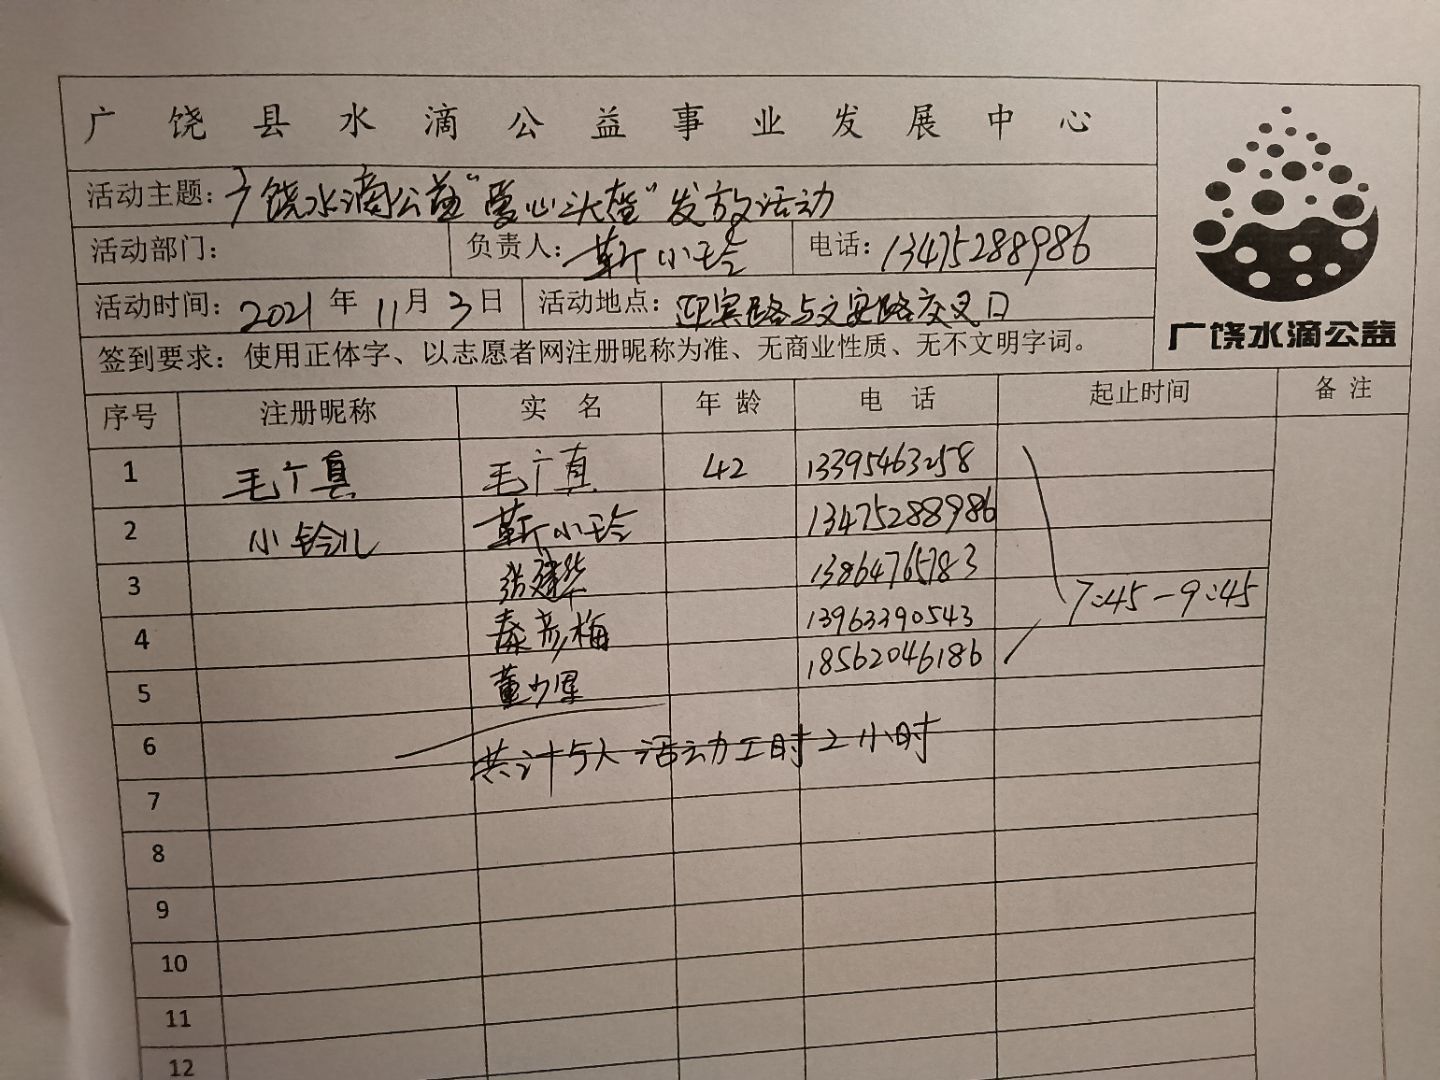 广饶县水滴公益事业发展中心
活动主题：广饶水滴公益“爱心头盔”发放活动
活动部门： 负责人：靳小玲 电话：13475288986
活动时间：2021年11月3日 活动地点：迎宾路与文安路交叉口
广饶水滴公益
签到要求：使用正体字、以志愿者网注册昵称为准、无商业性质、无不文明字词。
序号 注册昵称 实名 年龄 电话 起止时间 备注
1 毛广真 毛广真 42 13395463258
2 小铃儿 靳小玲 13475288986
3 张建华 13864765783
4 秦彦梅 13963390543 7:45-9:45
5 董少军 18562046186
6 共计5人活动工时2小时
7
8
9
10
11
12